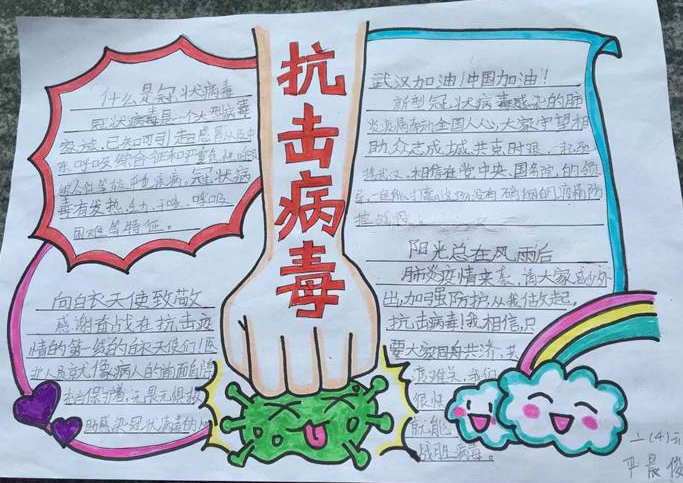 抗击病毒
什么是冠状病毒
冠状病毒是一个大型病毒
家族,已知可引起感冒以及中
东呼吸综合征和严重急性呼吸
综合征等较严重疾病。冠状病
毒有发热、乏力、干咳、呼吸
困难等特征。
向白衣天使致敬
感谢奋战在抗击疫
情的第一线的白衣天使们!医
助感染冠状病毒的
武汉加油!中国加油!
新型冠状病毒感染的肺
炎疫情牵动全国人心,大家守望相
助、众志成城、共克时艰,一起
武汉,相信在党中央、国务院的领
导,一定能打赢这场没有硝烟的疫情防
控战役。
阳光总在风雨后
肺炎疫情来袭,请大家减少外
出,加强防护从我做起,
抗击病毒!我相信,只
要大家同舟共济,共
度难关,我们
很快
就能
战胜病毒。
二(4)